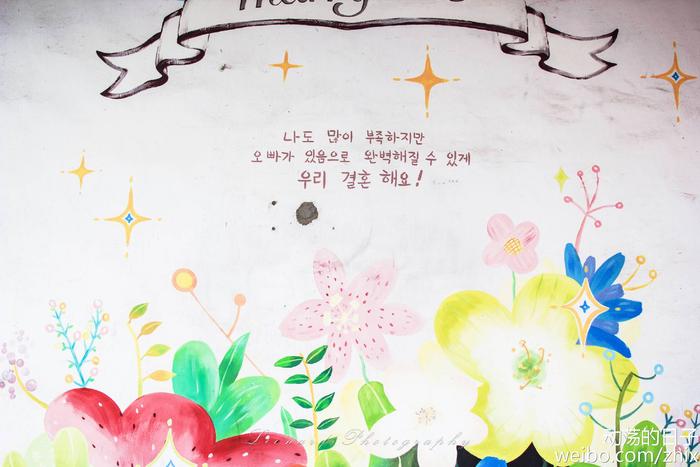 나도 많이 부족하지만
오빠가 있음으로 완벽해질 수 있게
우리 결혼 해요! ......
Photography
动荡的日子
weibo.com/zhjx